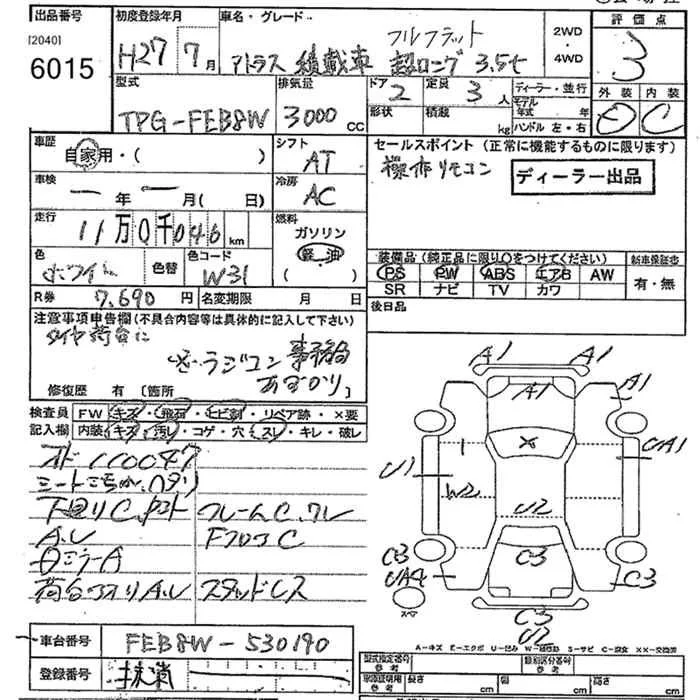 出品番号
[2040]
6015
初度登録年月
H27 7月
車名・グレード
フルフラット
アトラス 積載車 超ロング 3.5t
2WD
・
4WD
評価点
3
型式
TPG-FEB8W
排気量
3000 CC
ドア
2
定員
3 人
形状
積載
kg
ディーラー・並行
モデル
年式 年
ハンドル 左・右
外装 内装
D C
車歴
自家用・( )
シフト
AT
セールスポイント (正常に機能するものに限ります)
操作リモコン
ディーラー出品
車検
一年 一月( 日)
冷房
AC
走行
11万0千046 km
燃料
ガソリン
軽油
( )
色
ホワイト
色替
色コード
W31
装備品 (純正品に限り○をつけてください)
PS PW ABS エアB AW
SR ナビ TV カワ
新車保証書
有・無
R券 7,690 円 名変期限 月 日
後日品
注意事項申告欄(不具合内容等は具体的に記入して下さい)
タイヤ荷台に
※ラジコン事務局
あずかり
修復歴 有 [箇所 ]
検査員 FW キズ・飛石・ヒビ割・リペア跡・×要
記入欄 内装・キズ・汚レ・コゲ・穴・スレ・キレ・破レ
110047
フレームC
A.L
FフロアC
ミラーA
スタッドレス
A1 A1
A1
A1
UA1
U1
1
×
W2
U2
C3
UA4
C3
C3
C3
U2
スペ
車台番号 FEB8W-530190
登録番号 抹消
A-キズ E-エクボ U-凹み W-補修跡 S-サビ C-腐食 XX-交換済
型式指定番号
参考
類別区分番号
参考
長さ cm
幅 cm
高さ cm